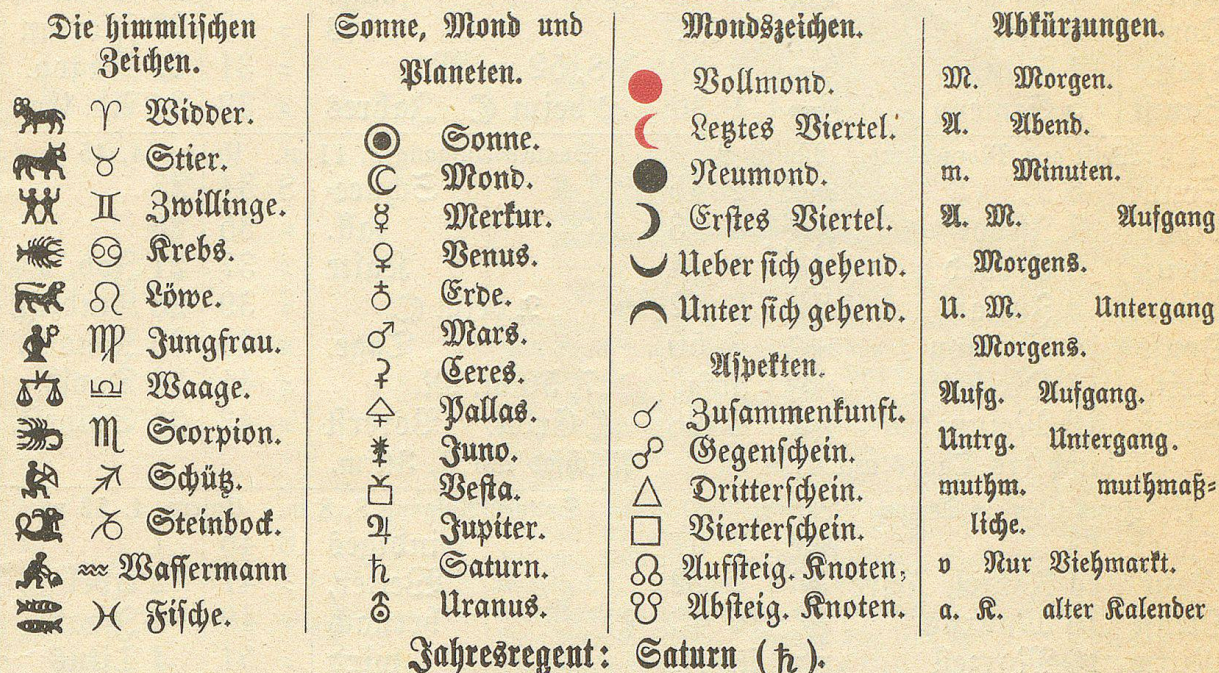 Die himmlischen
Zeichen.
♈ Widder.
♉ Stier.
♊ Zwillinge.
♋ Krebs.
♌ Löwe.
♍ Jungfrau.
♎ Waage.
♏ Scorpion.
♐ Schütz.
♑ Steinbock.
♒ Wassermann
♓ Fische.
Sonne, Mond und
Planeten.
☉ Sonne.
☾ Mond.
☿ Merkur.
♀ Venus.
♁ Erde.
♂ Mars.
⚳ Ceres.
⚴ Pallas.
⚵ Juno.
⚶ Vesta.
♃ Jupiter.
♄ Saturn.
⛢ Uranus.
Mondszeichen.
Vollmond.
Letztes Viertel.
Neumond.
Erstes Viertel.
Ueber sich gehend.
Unter sich gehend.
Aspekten.
☌ Zusammenkunft.
☍ Gegenschein.
△ Dritterschein.
□ Vierterschein.
☊ Aufsteig. Knoten.
☋ Absteig. Knoten.
Abkürzungen.
M. Morgen.
A. Abend.
m. Minuten.
A. M. Aufgang
Morgens.
U. M. Untergang
Morgens.
Aufg. Aufgang.
Untrg. Untergang.
muthm. muthmaß-
liche.
v Nur Viehmarkt.
a. K. alter Kalender
Jahresregent: Saturn (♄).